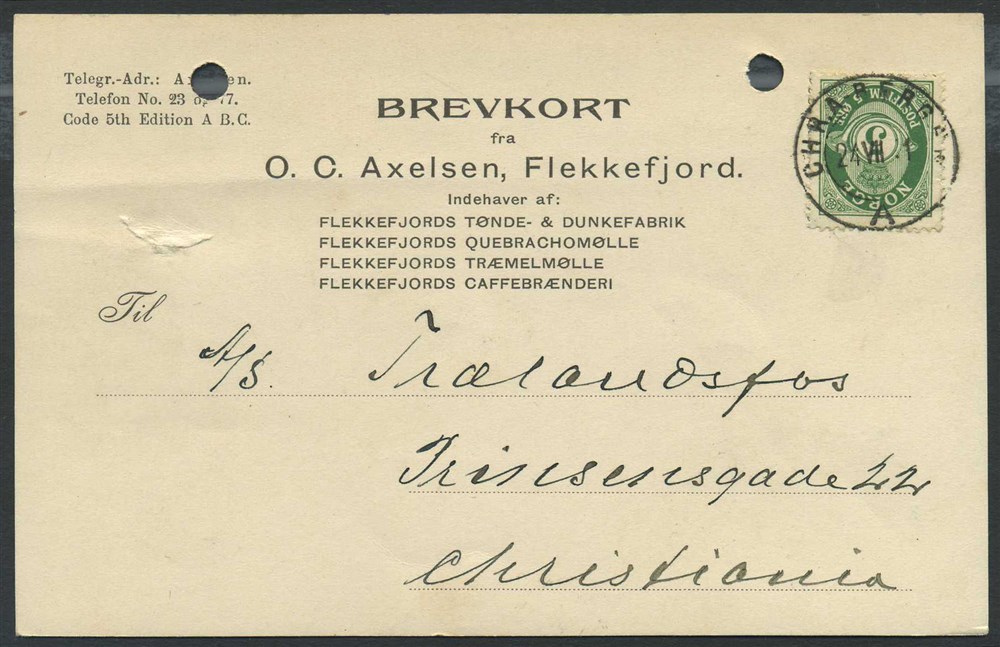 Telegr.-Adr.:
Telefon No. 23 og 77.
Code 5th Edition A B.C.
BREVKORT
fra
O. C. Axelsen, Flekkefjord.
Indehaver af:
FLEKKEFJORDS TØNDE- & DUNKEFABRIK
FLEKKEFJORDS QUEBRACHOMØLLE
FLEKKEFJORDS TRÆMELMØLLE
FLEKKEFJORDS CAFFEBRÆNDERI
POSTFRIM 5 ØRE
5
NORGE
24 VII
A
Til
A/S. Trælandsfos
Prinsensgade 22
Christiania